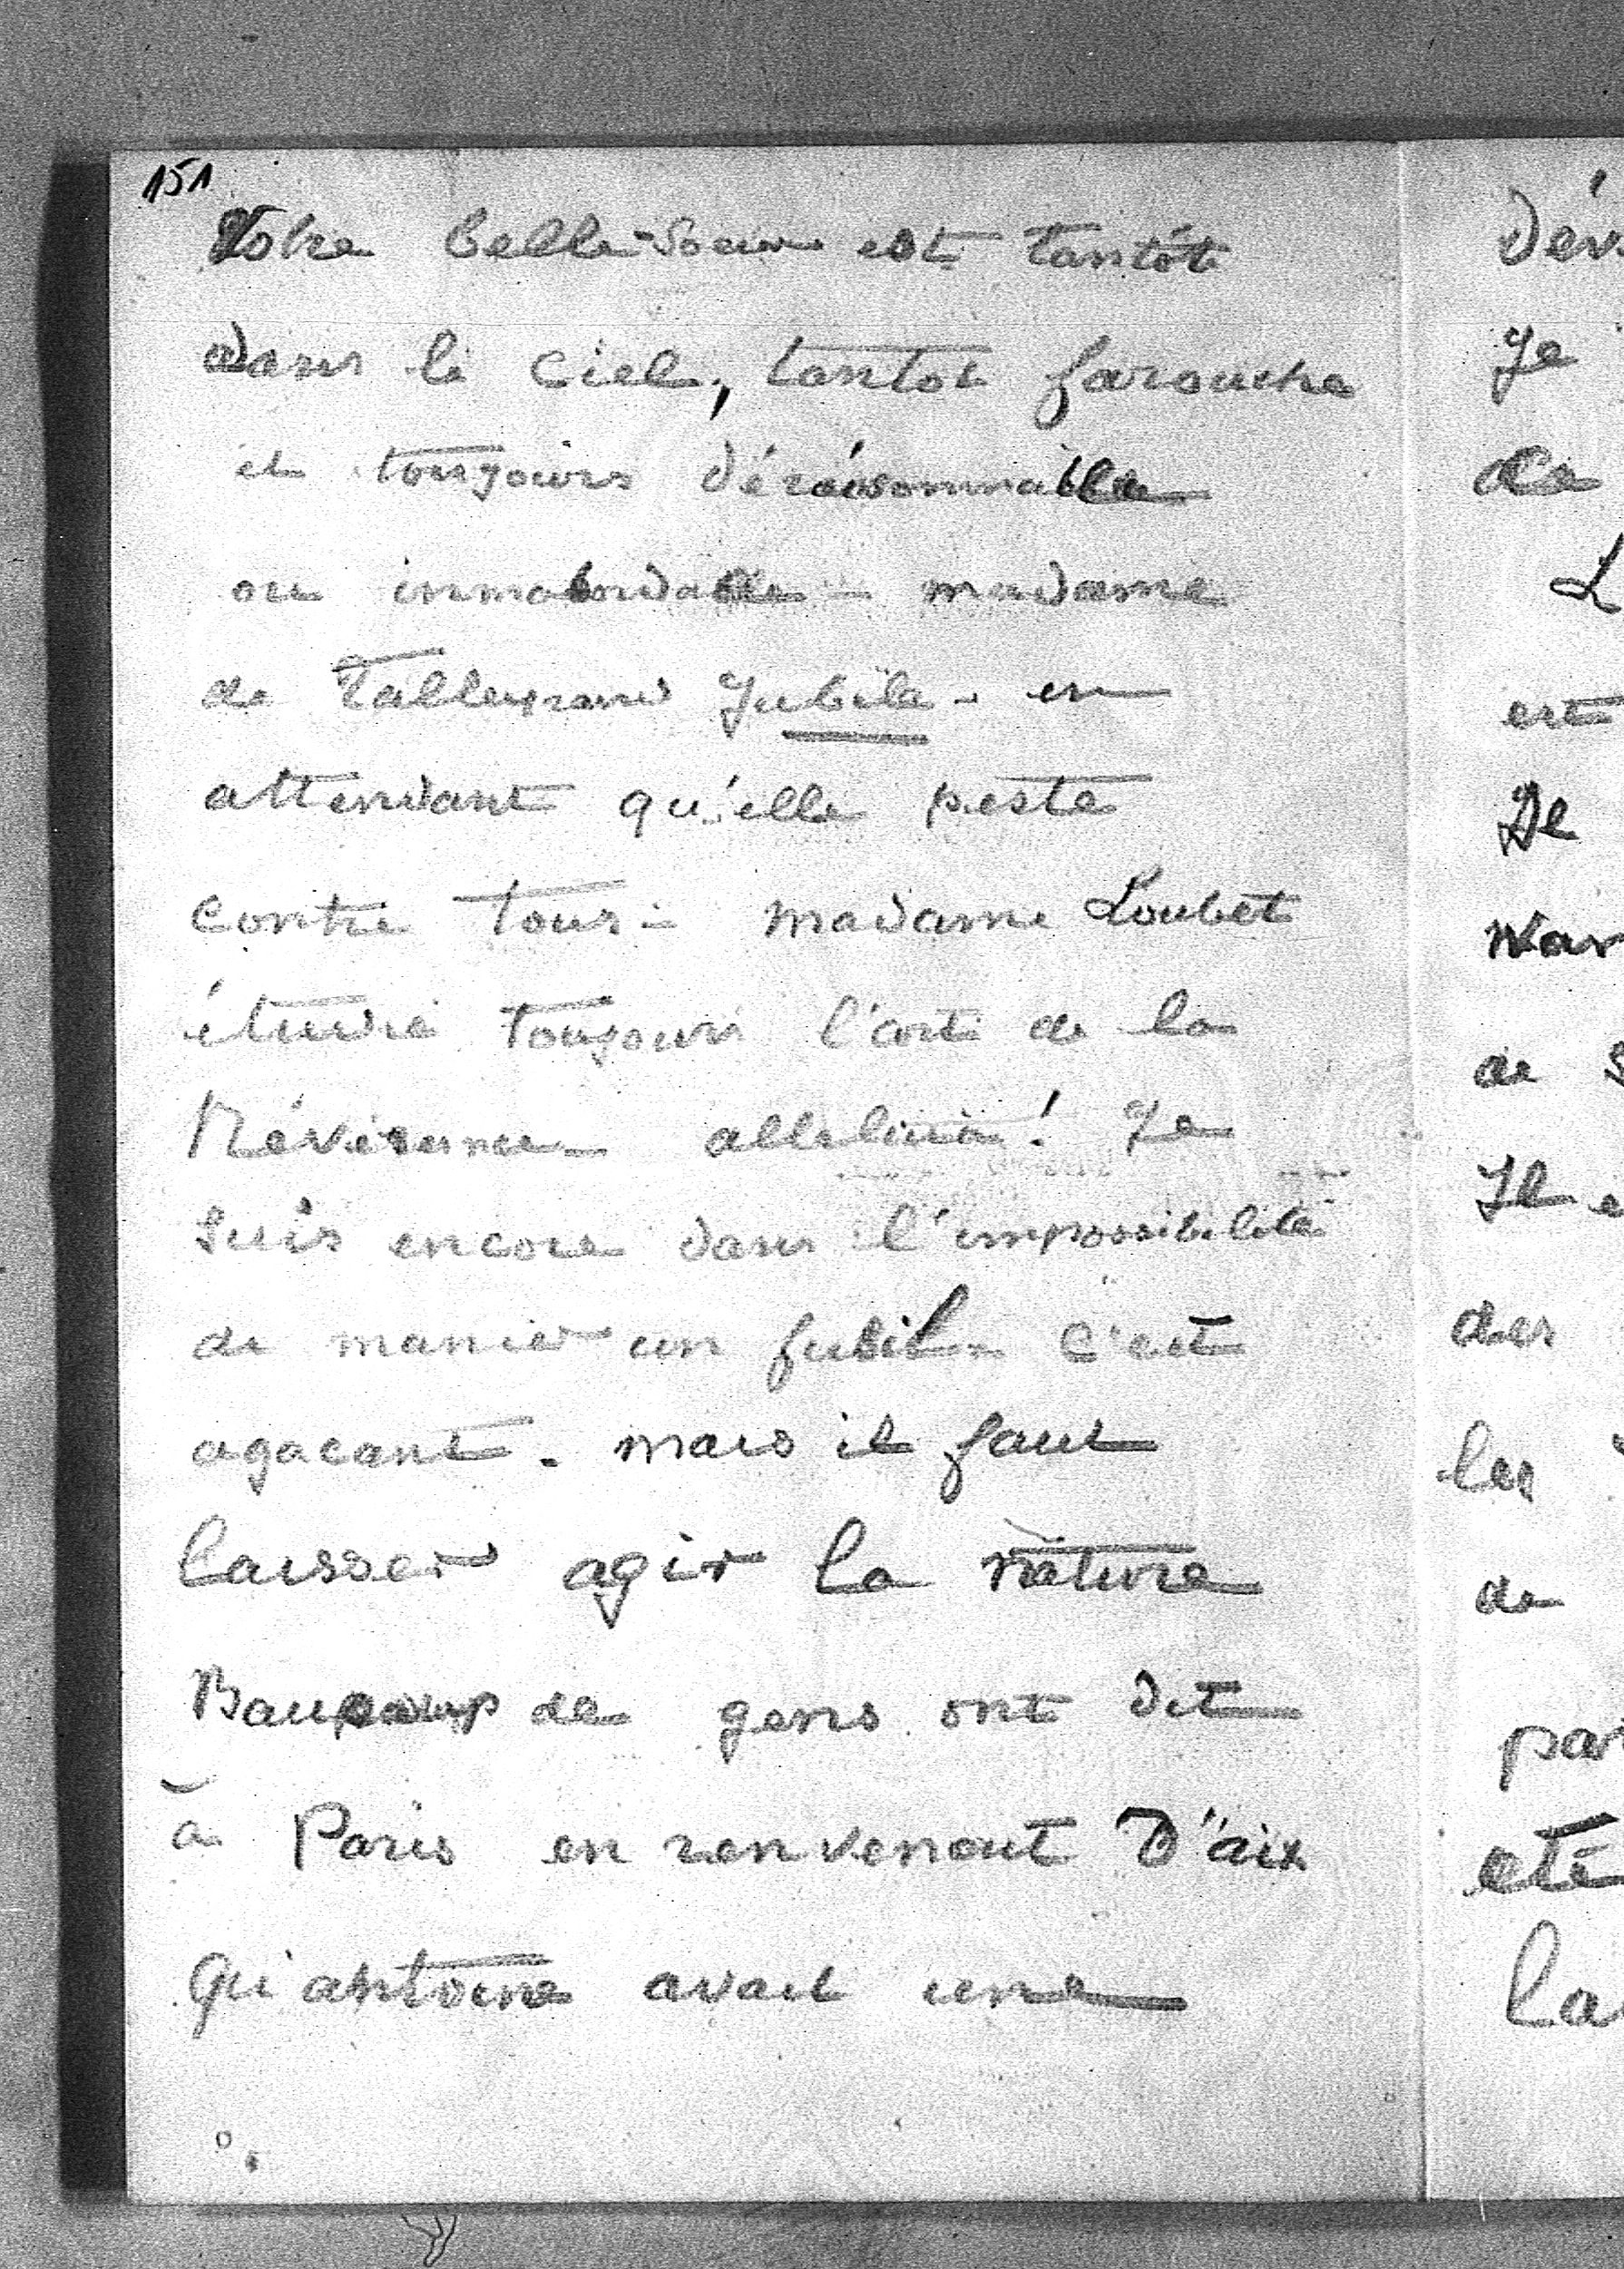 151
Votre belle-soeur est tantôt
dans le ciel, tantot farouche
et toujours déraisonnable
ou innabordable - madame
de Talleyrand Jubile - en
attendant qu'elle peste
contre tous - madame Loubet
étudie toujours l'art de la
Révérence - alleluia! Je
suis encore dans l'impossibilité
de manier un fusil - c'est
agacant. mais il faut
laisser agir la nature
Baucoup de gens ont dit
à Paris en renvenant D'aix
Qu'antoine avait une
Je
De
L
est
De
de S
Il e
des
les
de
par
eté
la